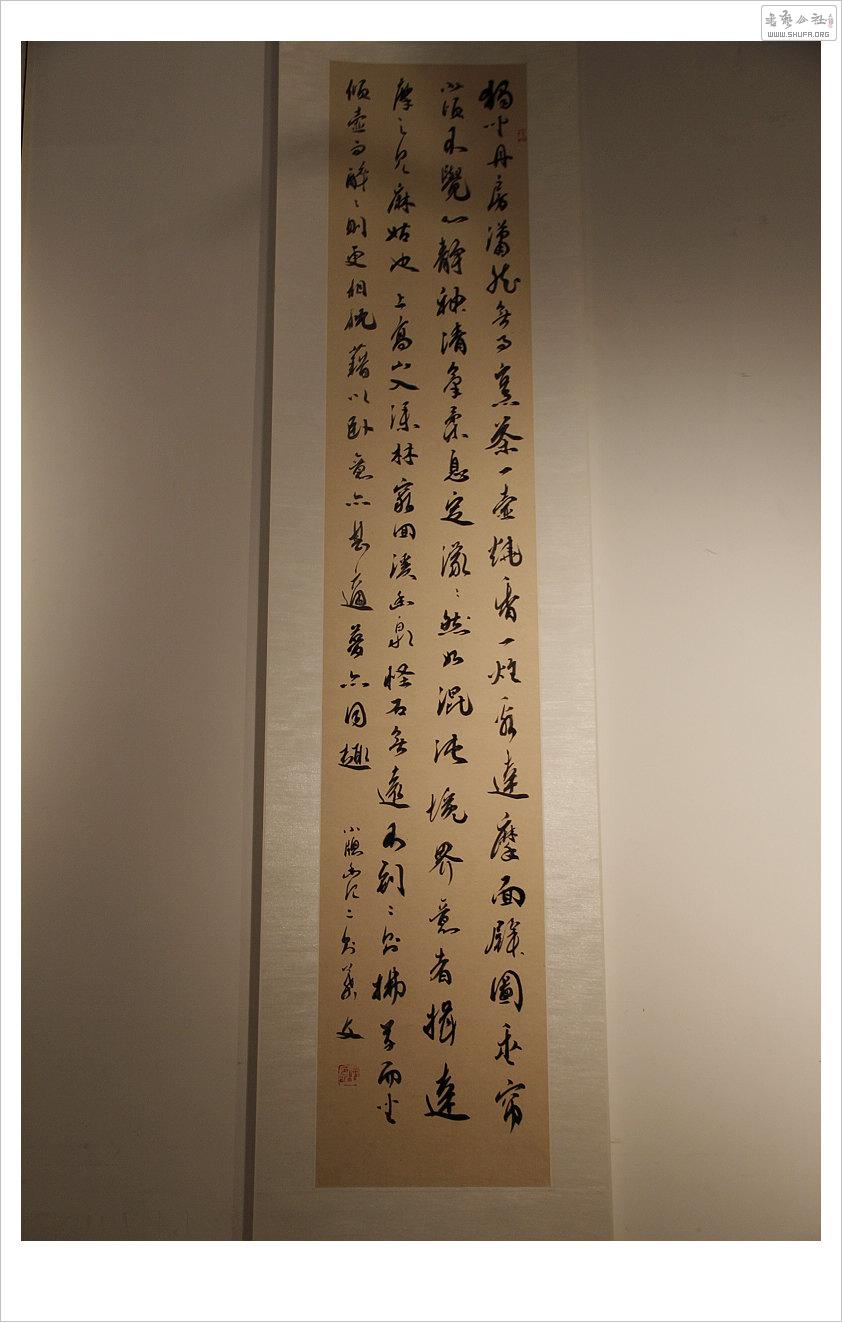 獨坐丹房瀟然無事烹茶一壺燒香一炷看達摩面壁圖垂簾
少頃不覺心靜神清氣柔息定濛々然如混沌境界意者揖達
摩之見麻姑也上高山入深林窮回溪幽泉怪石無遠不到々則拂草而坐
傾壺而醉々則更相枕藉以卧意亦甚適夢亦同趣
小窗幽記二則
書藝公社
WWW.SHUFA.ORG